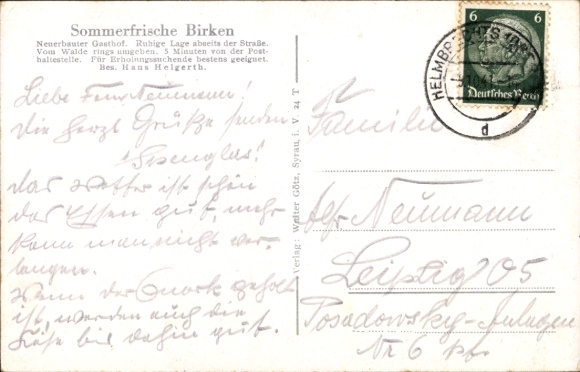 Sommerfrische Birken
Neuerbauter Gasthof. Ruhige Lage abseits der Straße.
Vom Walde rings umgeben. 5 Minuten von der Post-
haltestelle. Für Erholungssuchende bestens geeignet.
Bes. Hans Helgerth.
Liebe Fam. Neumann!
Die herzl. Grüße senden
das Wetter ist schön
das Essen gut, mehr
kann man nicht ver-
langen.
Wenn der geholt
ist, werden auch die
bis dahin gut.
Verlag: Walter Götz, Syrau, i. V. 24 T
6 6
Deutsches Reich
HELMBRECHTS
d
Familie
Neumann
Leipzig O5
Posadowsky-Anlagen
Nr 6